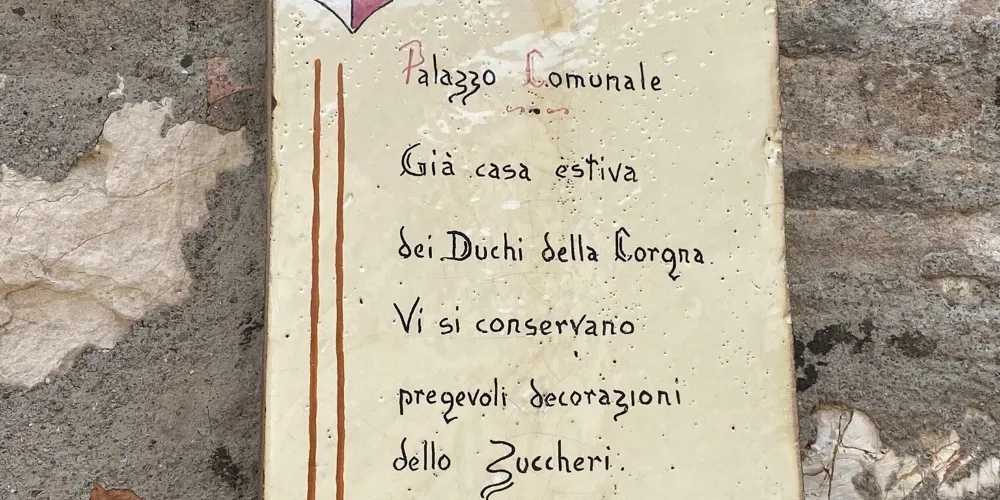 Palazzo Comunale
Già casa estiva
dei Duchi della Corgna
Vi si conservano
pregevoli decorazioni
dello Zuccheri.